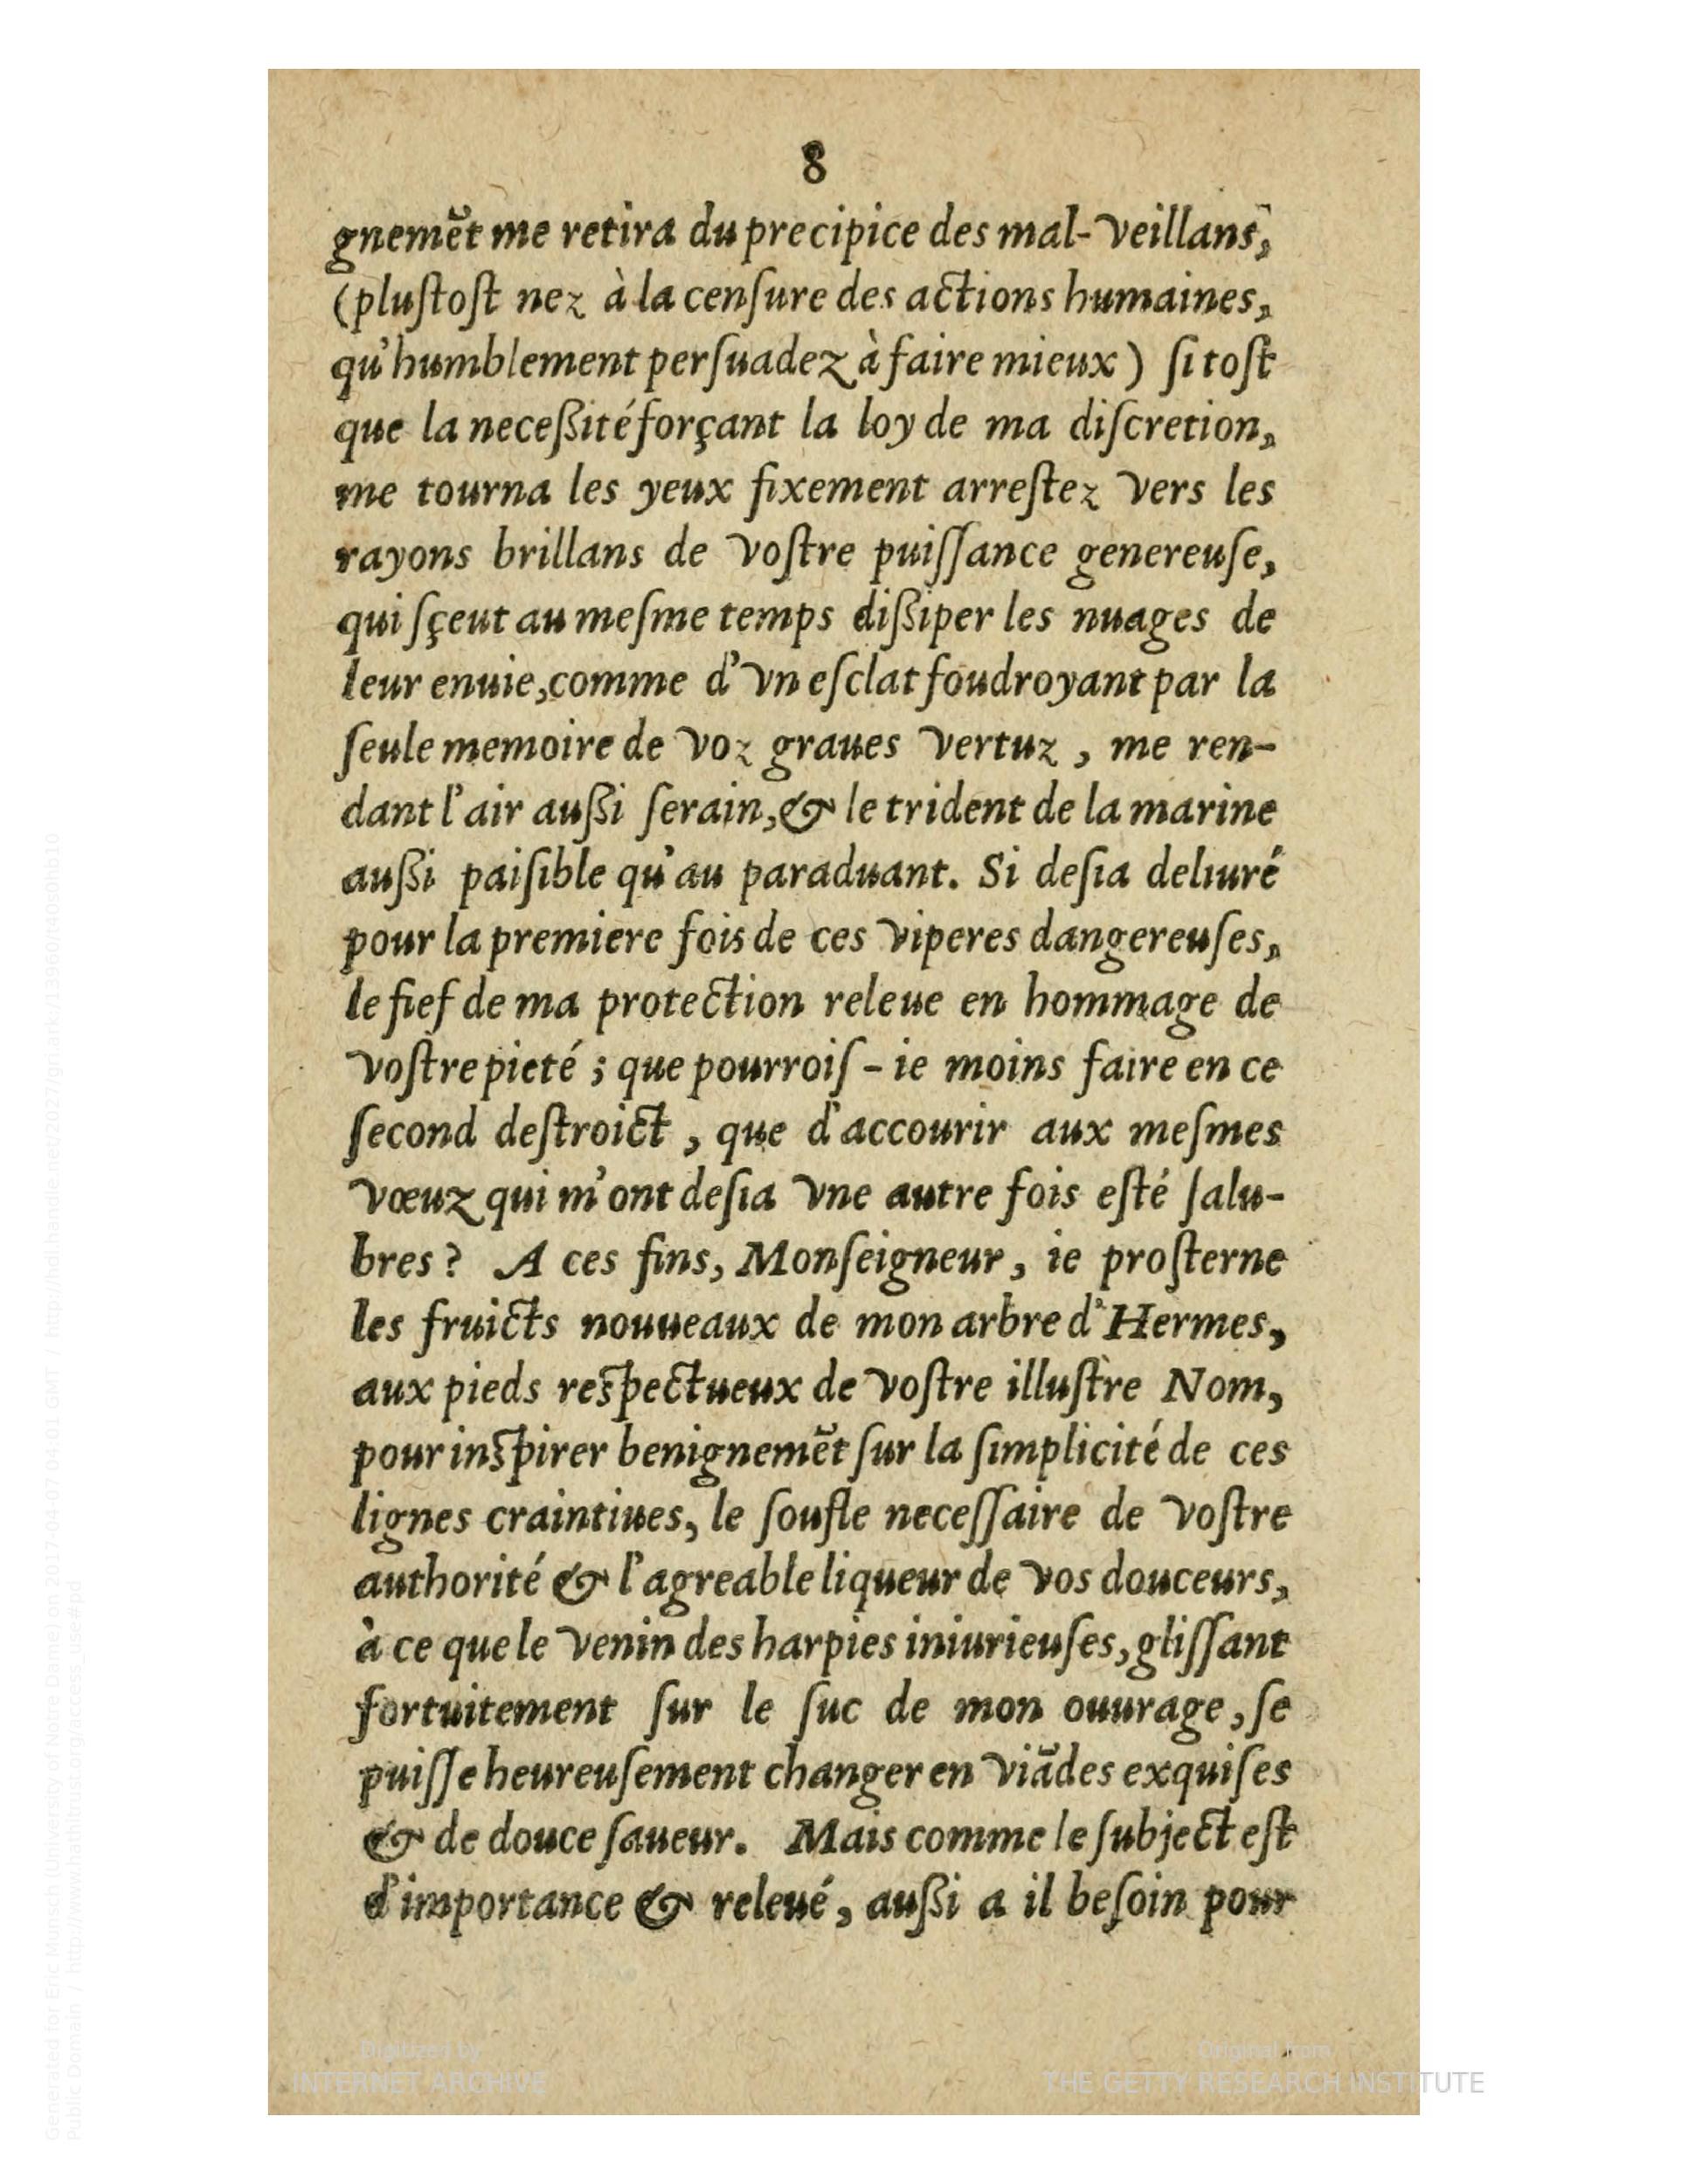 8
gnemẽt me retira du precipice des mal-veillans,
(pluſtoſt nez à la cenſure des actions humaines,
qu'humblement perſuadez à faire mieux) ſi toſt
que la neceßité forçant la loy de ma diſcretion,
me tourna les yeux fixement arreſtez vers les
rayons brillans de voſtre puiſſance genereuſe,
qui ſçeut au meſme temps dißiper les nuages de
leur enuie, comme d'vn eſclat foudroyant par la
ſeule memoire de voz graues vertuz, me ren-
dant l'air außi ſerain, & le trident de la marine
außi paiſible qu'au paraduant. Si deſia deliuré
pour la premiere fois de ces viperes dangereuſes,
le fief de ma protection releue en hommage de
voſtre pieté; que pourroiſ-ie moins faire en ce
ſecond deſtroict, que d'accourir aux meſmes
vœuz qui m'ont deſia vne autre fois eſté ſalu-
bres? A ces fins, Monſeigneur, ie proſterne
les fruicts nouueaux de mon arbre d'Hermes,
aux pieds reſpectueux de voſtre illuſtre Nom,
pour inſpirer benignemẽt ſur la ſimplicité de ces
lignes craintiues, le ſoufle neceſſaire de voſtre
authorité & l'agreable liqueur de vos douceurs,
à ce que le venin des harpies iniurieuſes, gliſſant
fortuitement ſur le ſuc de mon ouurage, ſe
puiſſe heureuſement changer en viãdes exquiſes
& de douce ſaueur. Mais comme le ſubject eſt
d'importance & releué, außi a il beſoin pour
Digitized by
INTERNET ARCHIVE
Original from
THE GETTY RESEARCH INSTITUTE